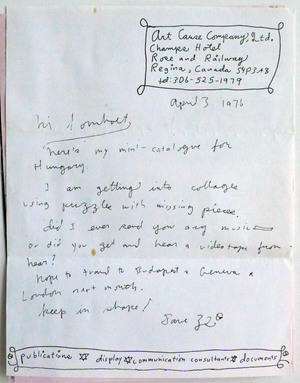 Art Cause Company, Ltd.
Champs Hotel
Rose and Railway
Regina, Canada S4P3A8
tel: 306-525-1979
April 3 1976
hi
here's my mini-catalogue for
Hungary.
I am getting into collage
using puzzles with missing pieces.
did I ever send you any music
or did you get and hear a videotape from
hear?
hope to travel to Budapest & Geneva &
London next month.
keep in shape!
publications display communication consultants documents